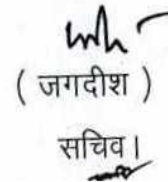 ( जगदीश )
सचिव।